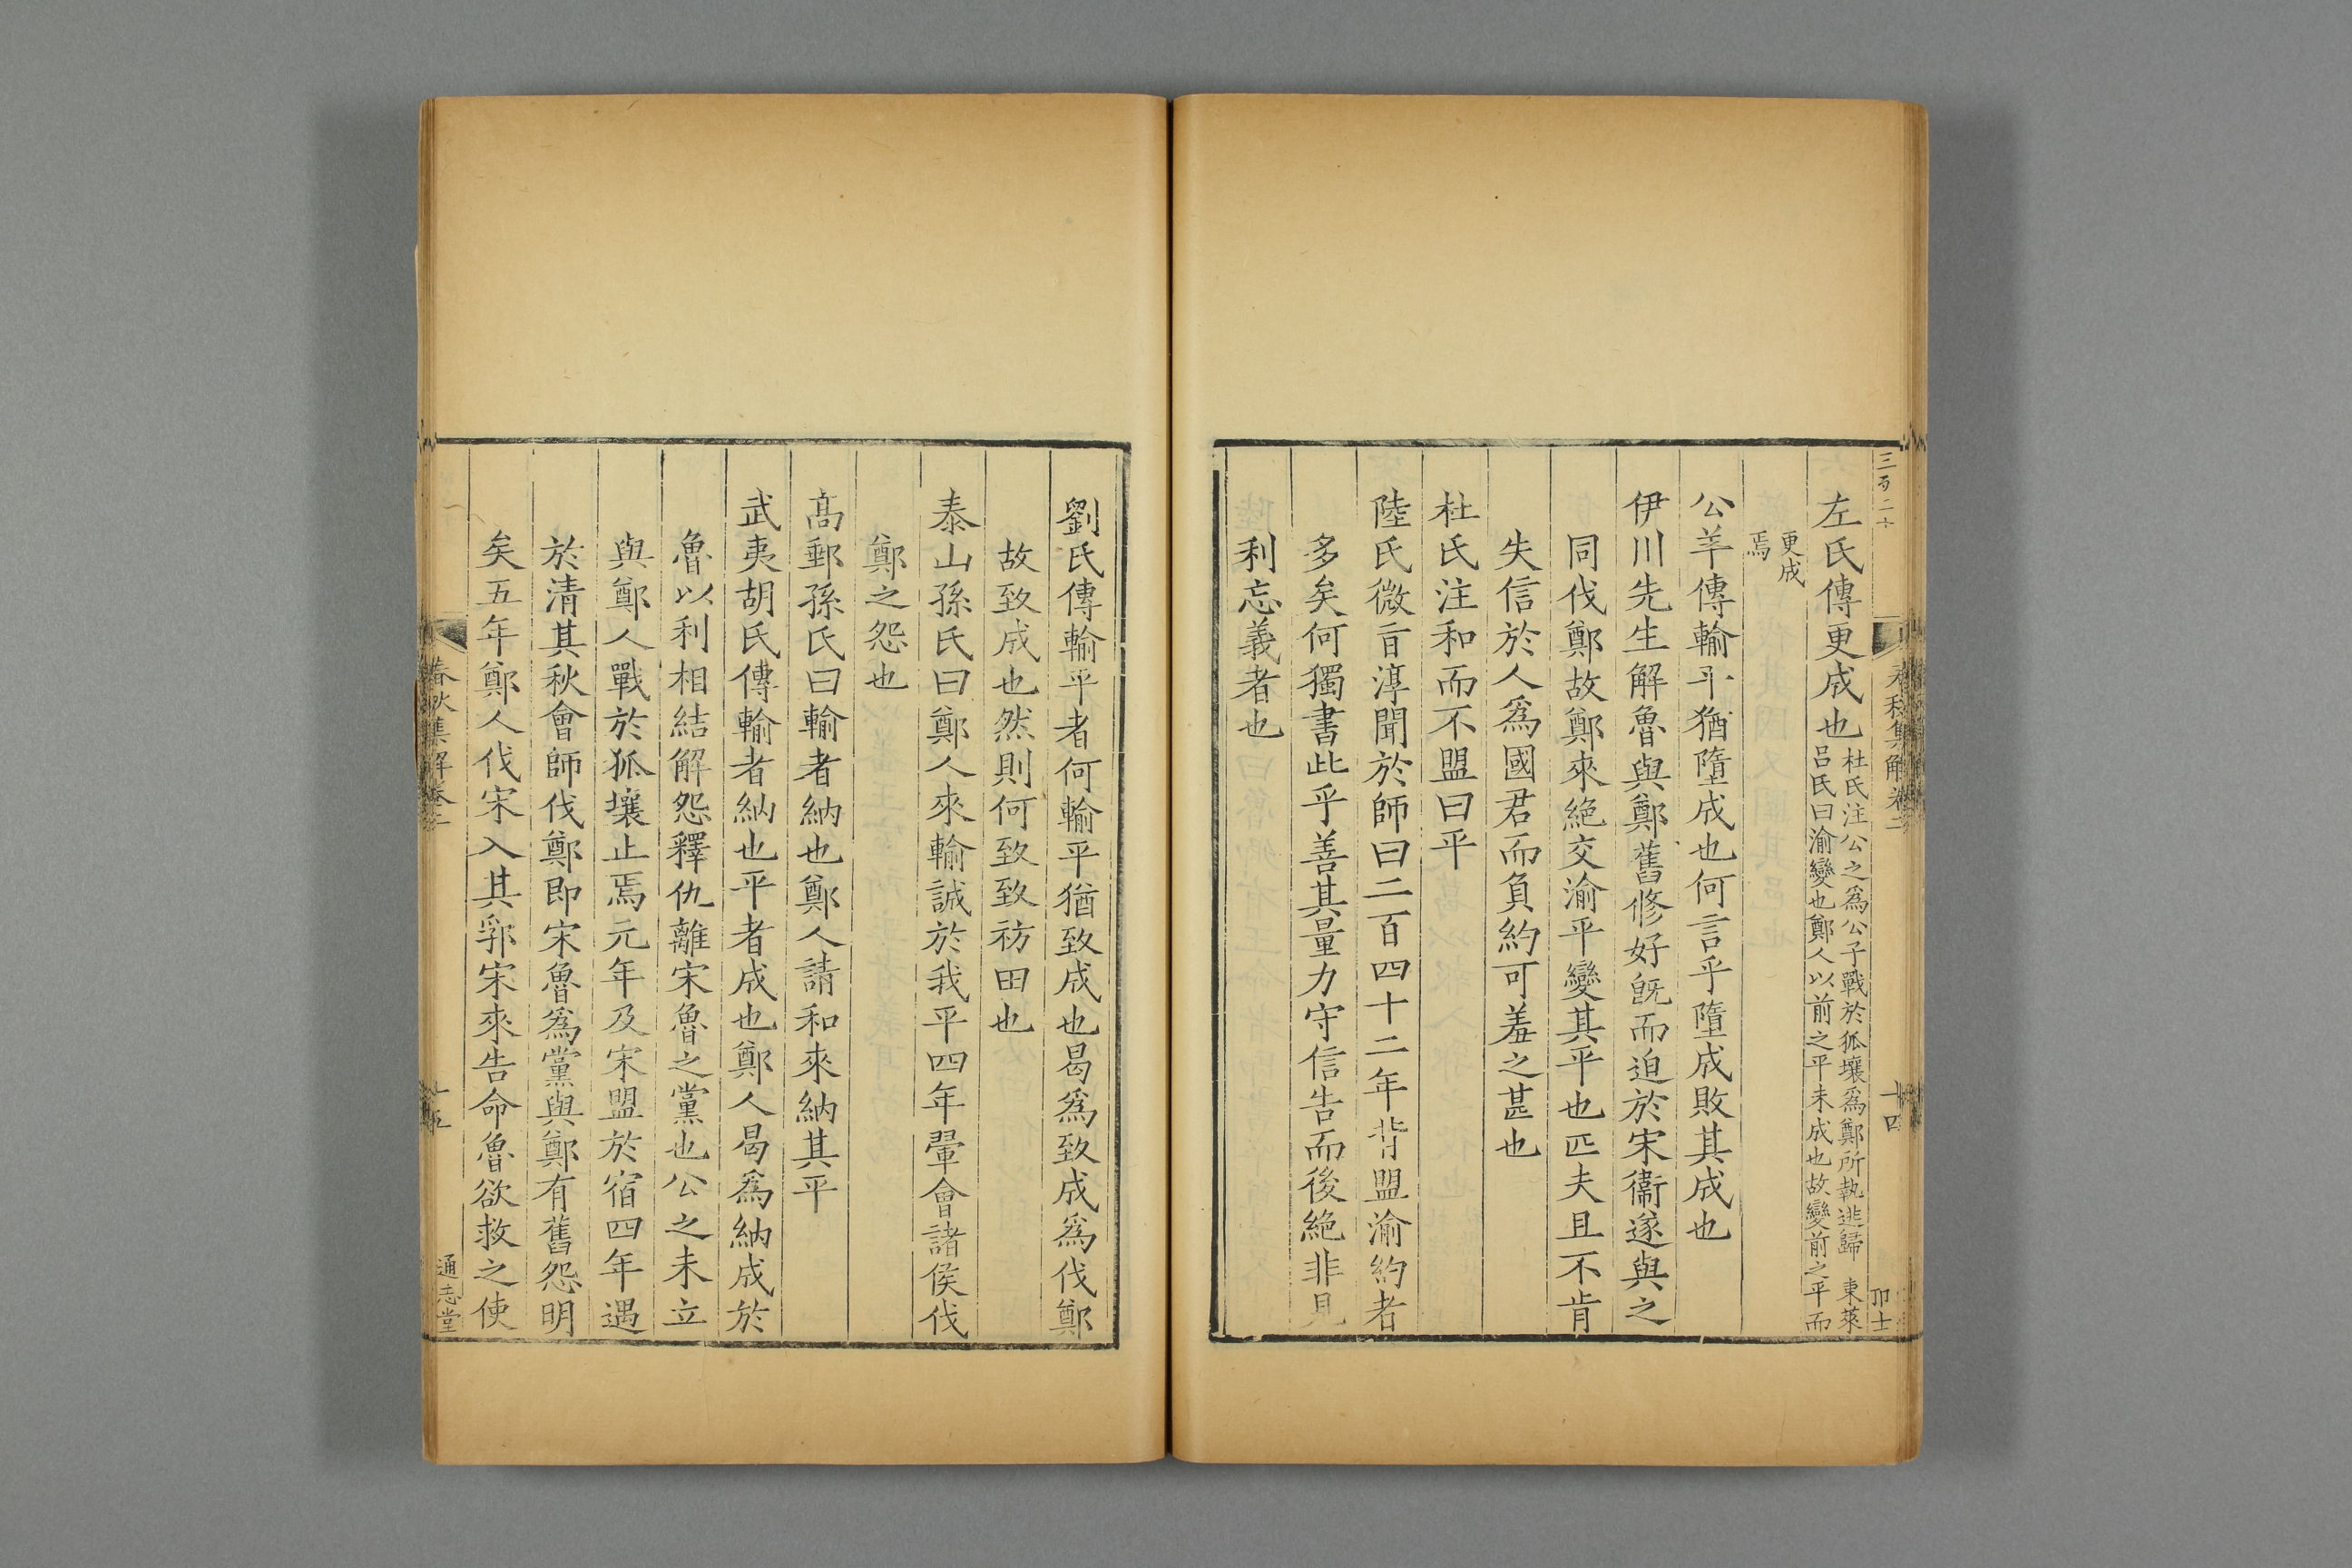 三百二十
春秋集解卷二
十四
左氏傳更成也杜氏注公之爲公子戰於狐壤爲鄭所執逃歸 東萊
呂氏曰渝變也鄭人以前之平未成也故變前之平而
更成
焉
公羊傳輸平猶墮成也何言乎墮成敗其成也
伊川先生解魯與鄭舊修好旣而迫於宋衞遂與之
同伐鄭故鄭來絶交渝平變其平也匹夫且不肯
失信於人爲國君而負約可羞之甚也
杜氏注和而不盟曰平
陸氏微旨淳聞於師曰二百四十二年背盟渝約者
多矣何獨書此乎善其量力守信告而後絶非見
利忘義者也
劉氏傳輸平者何輸平猶致成也曷爲致成爲伐鄭
故致成也然則何致致祊田也
泰山孫氏曰鄭人來輸誠於我平四年翬會諸侯伐
鄭之怨也
高郵孫氏曰輸者納也鄭人請和來納其平
武夷胡氏傳輸者納也平者成也鄭人曷爲納成於
魯以利相結解怨釋仇離宋魯之黨也公之未立
與鄭人戰於狐壤止焉元年及宋盟於宿四年遇
於清其秋會師伐鄭即宋魯爲黨與鄭有舊怨明
矣五年鄭人伐宋入其郛宋來告命魯欲救之使
春秋集解卷二
十五
通志堂